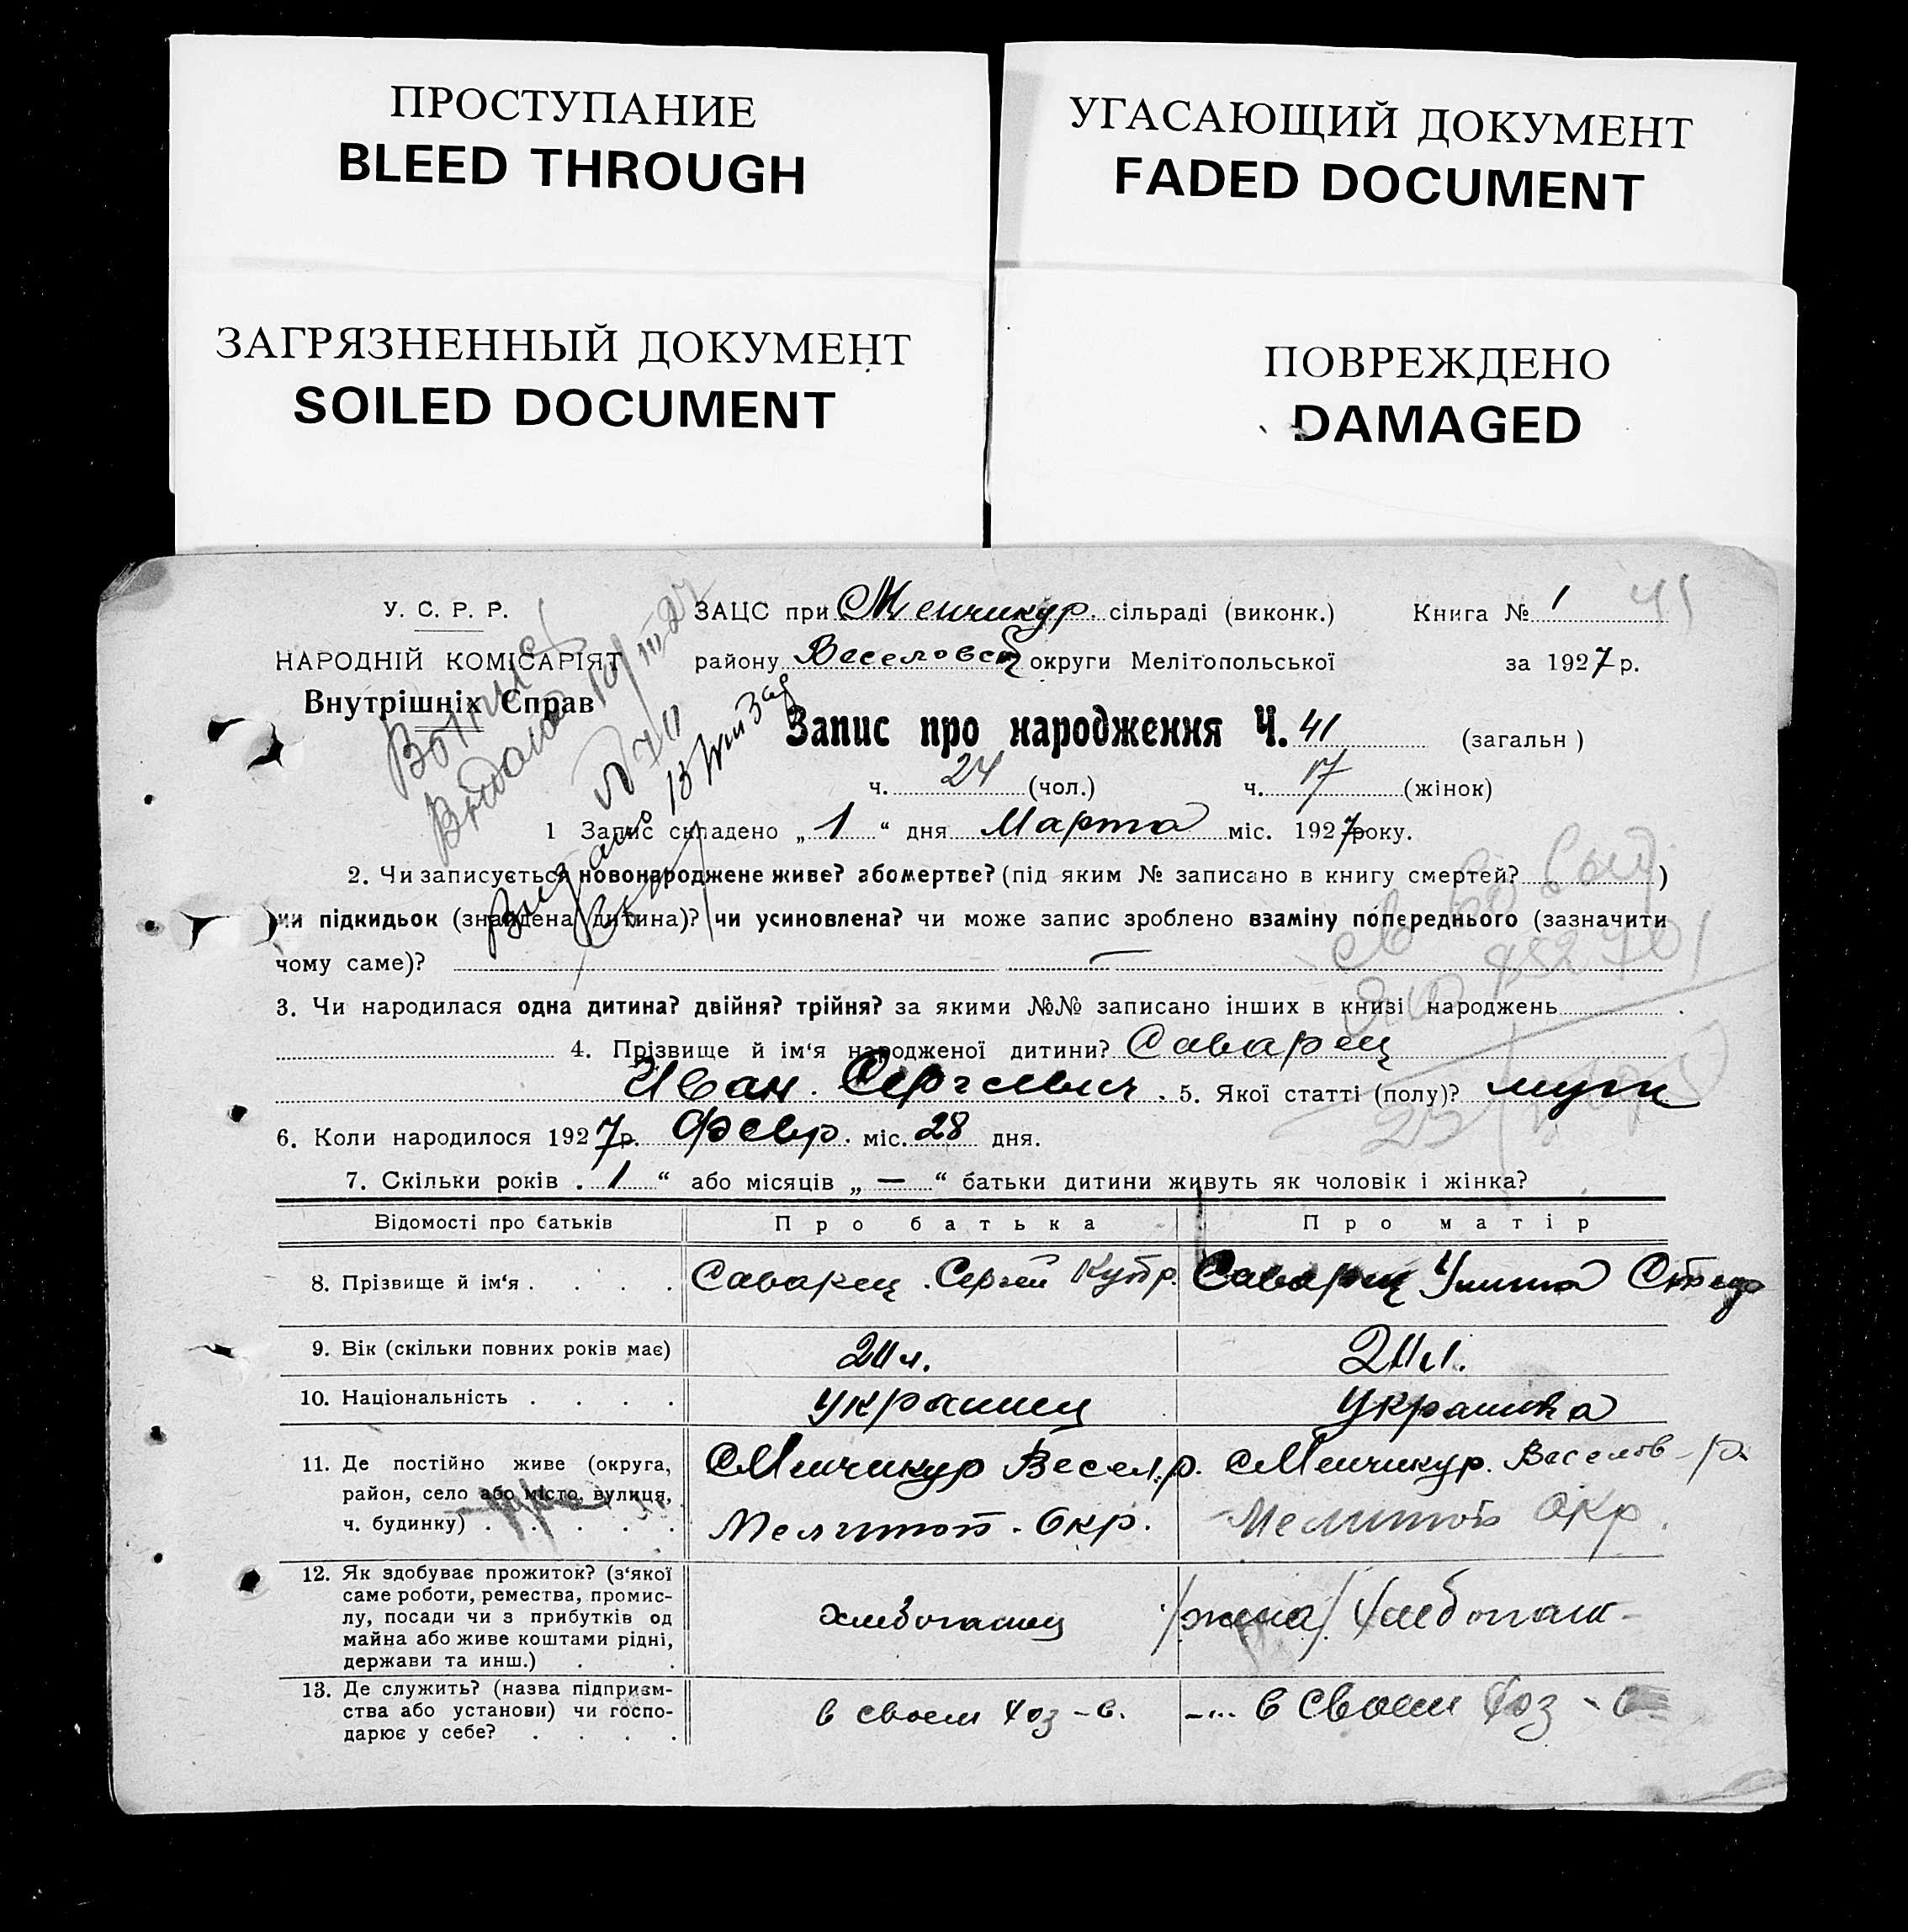 ПРОСТУПАНИЕ
BLEED THROUGH
УГАСАЮЩИЙ ДОКУМЕНТ
FADED DOCUMENT
ЗАГРЯЗНЕННЫЙ ДОКУМЕНТ
SOILED DOCUMENT
ПОВРЕЖДЕНО
DAMAGED
У. С. Р. Р.
НАРОДНІЙ КОМІСАРІЯТ
Внутрішніх Справ
ЗАЦС при Менчикур. сільраді (виконк.) Книга № 1 41
району Веселовск округи Мелітопольської за 1927 р.
Запис про народження Ч. 41 (загальн)
ч. 24 (чол.) ч. 17 (жінок)
1 Запис складено „ 1 “ дня Марта міс. 1927 року.
2. Чи записується новонароджене живе? або мертве? (під яким № записано в книгу смертей? )
чи підкидьок (знайдена дитина)? чи усиновлена? чи може запис зроблено взаміну попереднього (зазначити
чому саме)? —
3. Чи народилася одна дитина? двійня? трійня? за якими №№ записано інших в книзі народжень .
4. Прізвище й ім‘я народженої дитини? Саварец
Иван. Сергеевич. 5. Якої статті (полу)? муж
6. Коли народилося 1927 р. Февр. міс. 28 дня.
7. Скільки років . 1 “ або місяців „ — “ батьки дитини живуть як чоловік і жінка?
Відомості про батьків Про батька Про матір
8. Прізвище й ім‘я . . . . Саварец. Сергей Купр. Саварец
9. Вік (скільки повних років має)
10. Національність . . . . Украинец Украинка
11. Де постійно живе (округа, район, село або місто, вулиця, ч. будинку) . . . . .
Менчикур Весел. р. Менчикур. Веселов - р.
Мелитоп. Окр. Мелитоп Окр.
12. Як здобуває прожиток? (з‘якої
саме роботи, ремества, промис-
лу, посади чи з прибутків од
майна або живе коштами рідні,
держави та инш.) . .
хлебопашец /жена/ хлебопаш-
13. Де служить? (назва підприєм-
ства або установи) чи госпо-
дарює у себе? . . . .
в своем хоз-в. в своем хоз-в